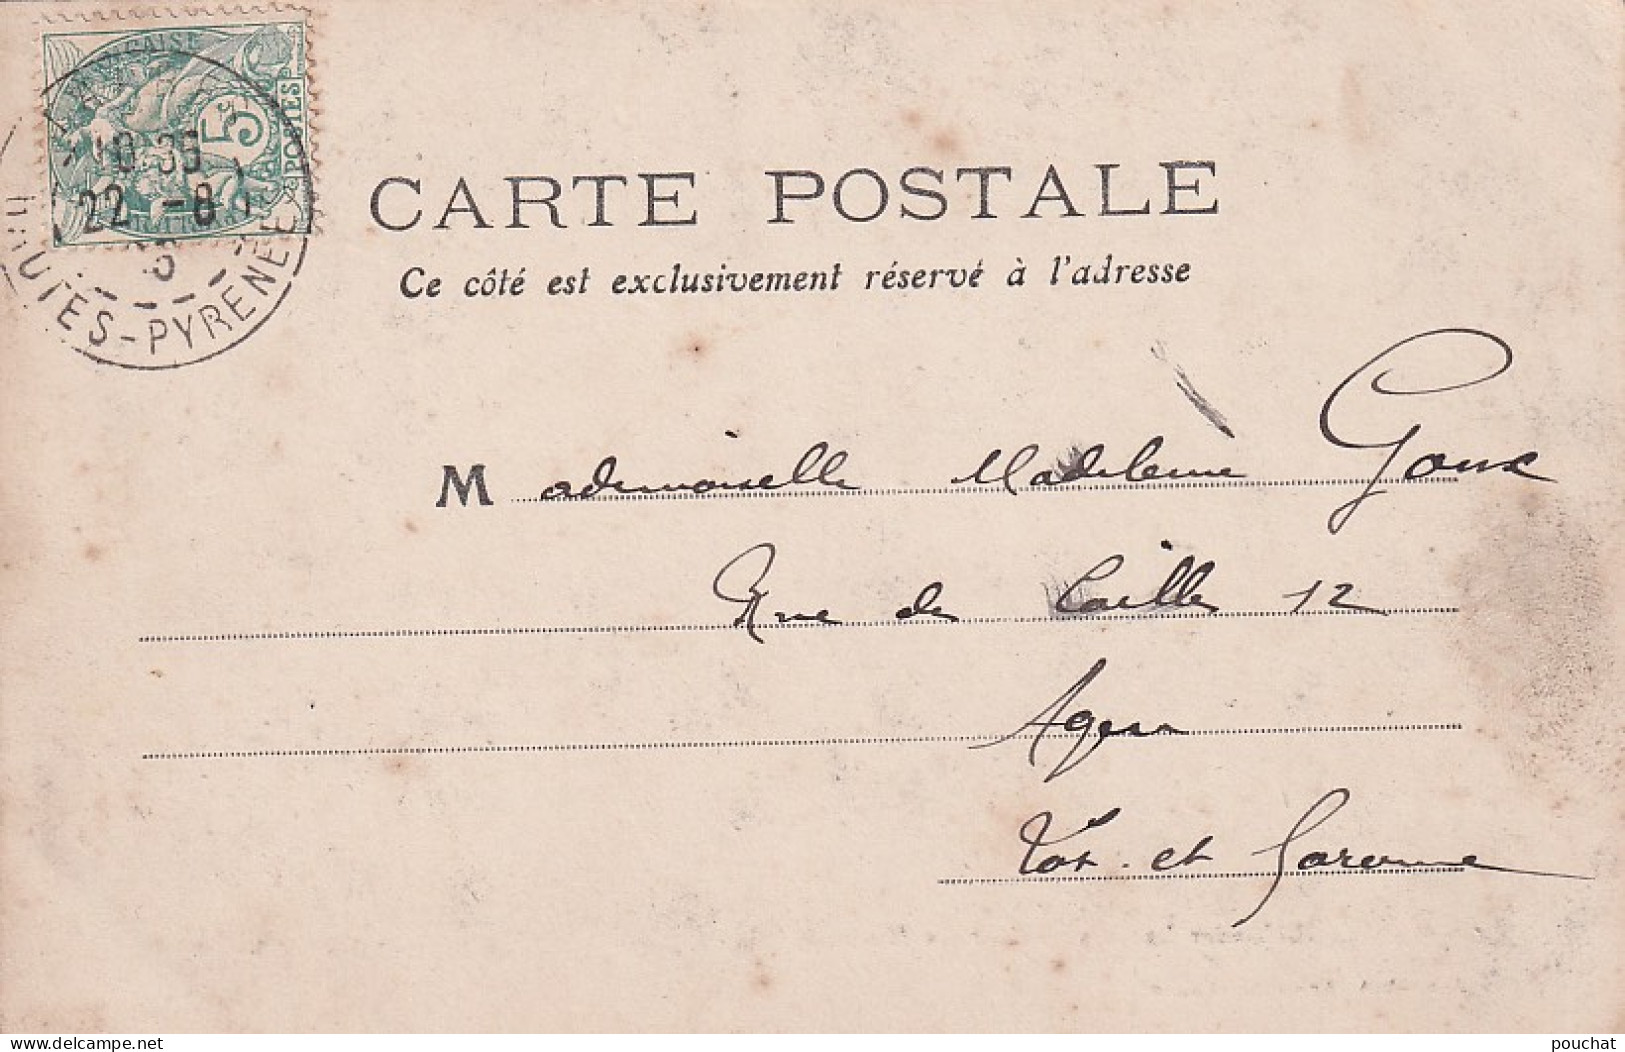 POSTES
5c
10 35
22 -8
HAUTES-PYRENEES
CARTE POSTALE
Ce côté est exclusivement réservé à l'adresse
Mademoiselle Madeleine Goux
Rue de Caille 12
Agen
Lot et Garonne
delcampe.net
pouchat